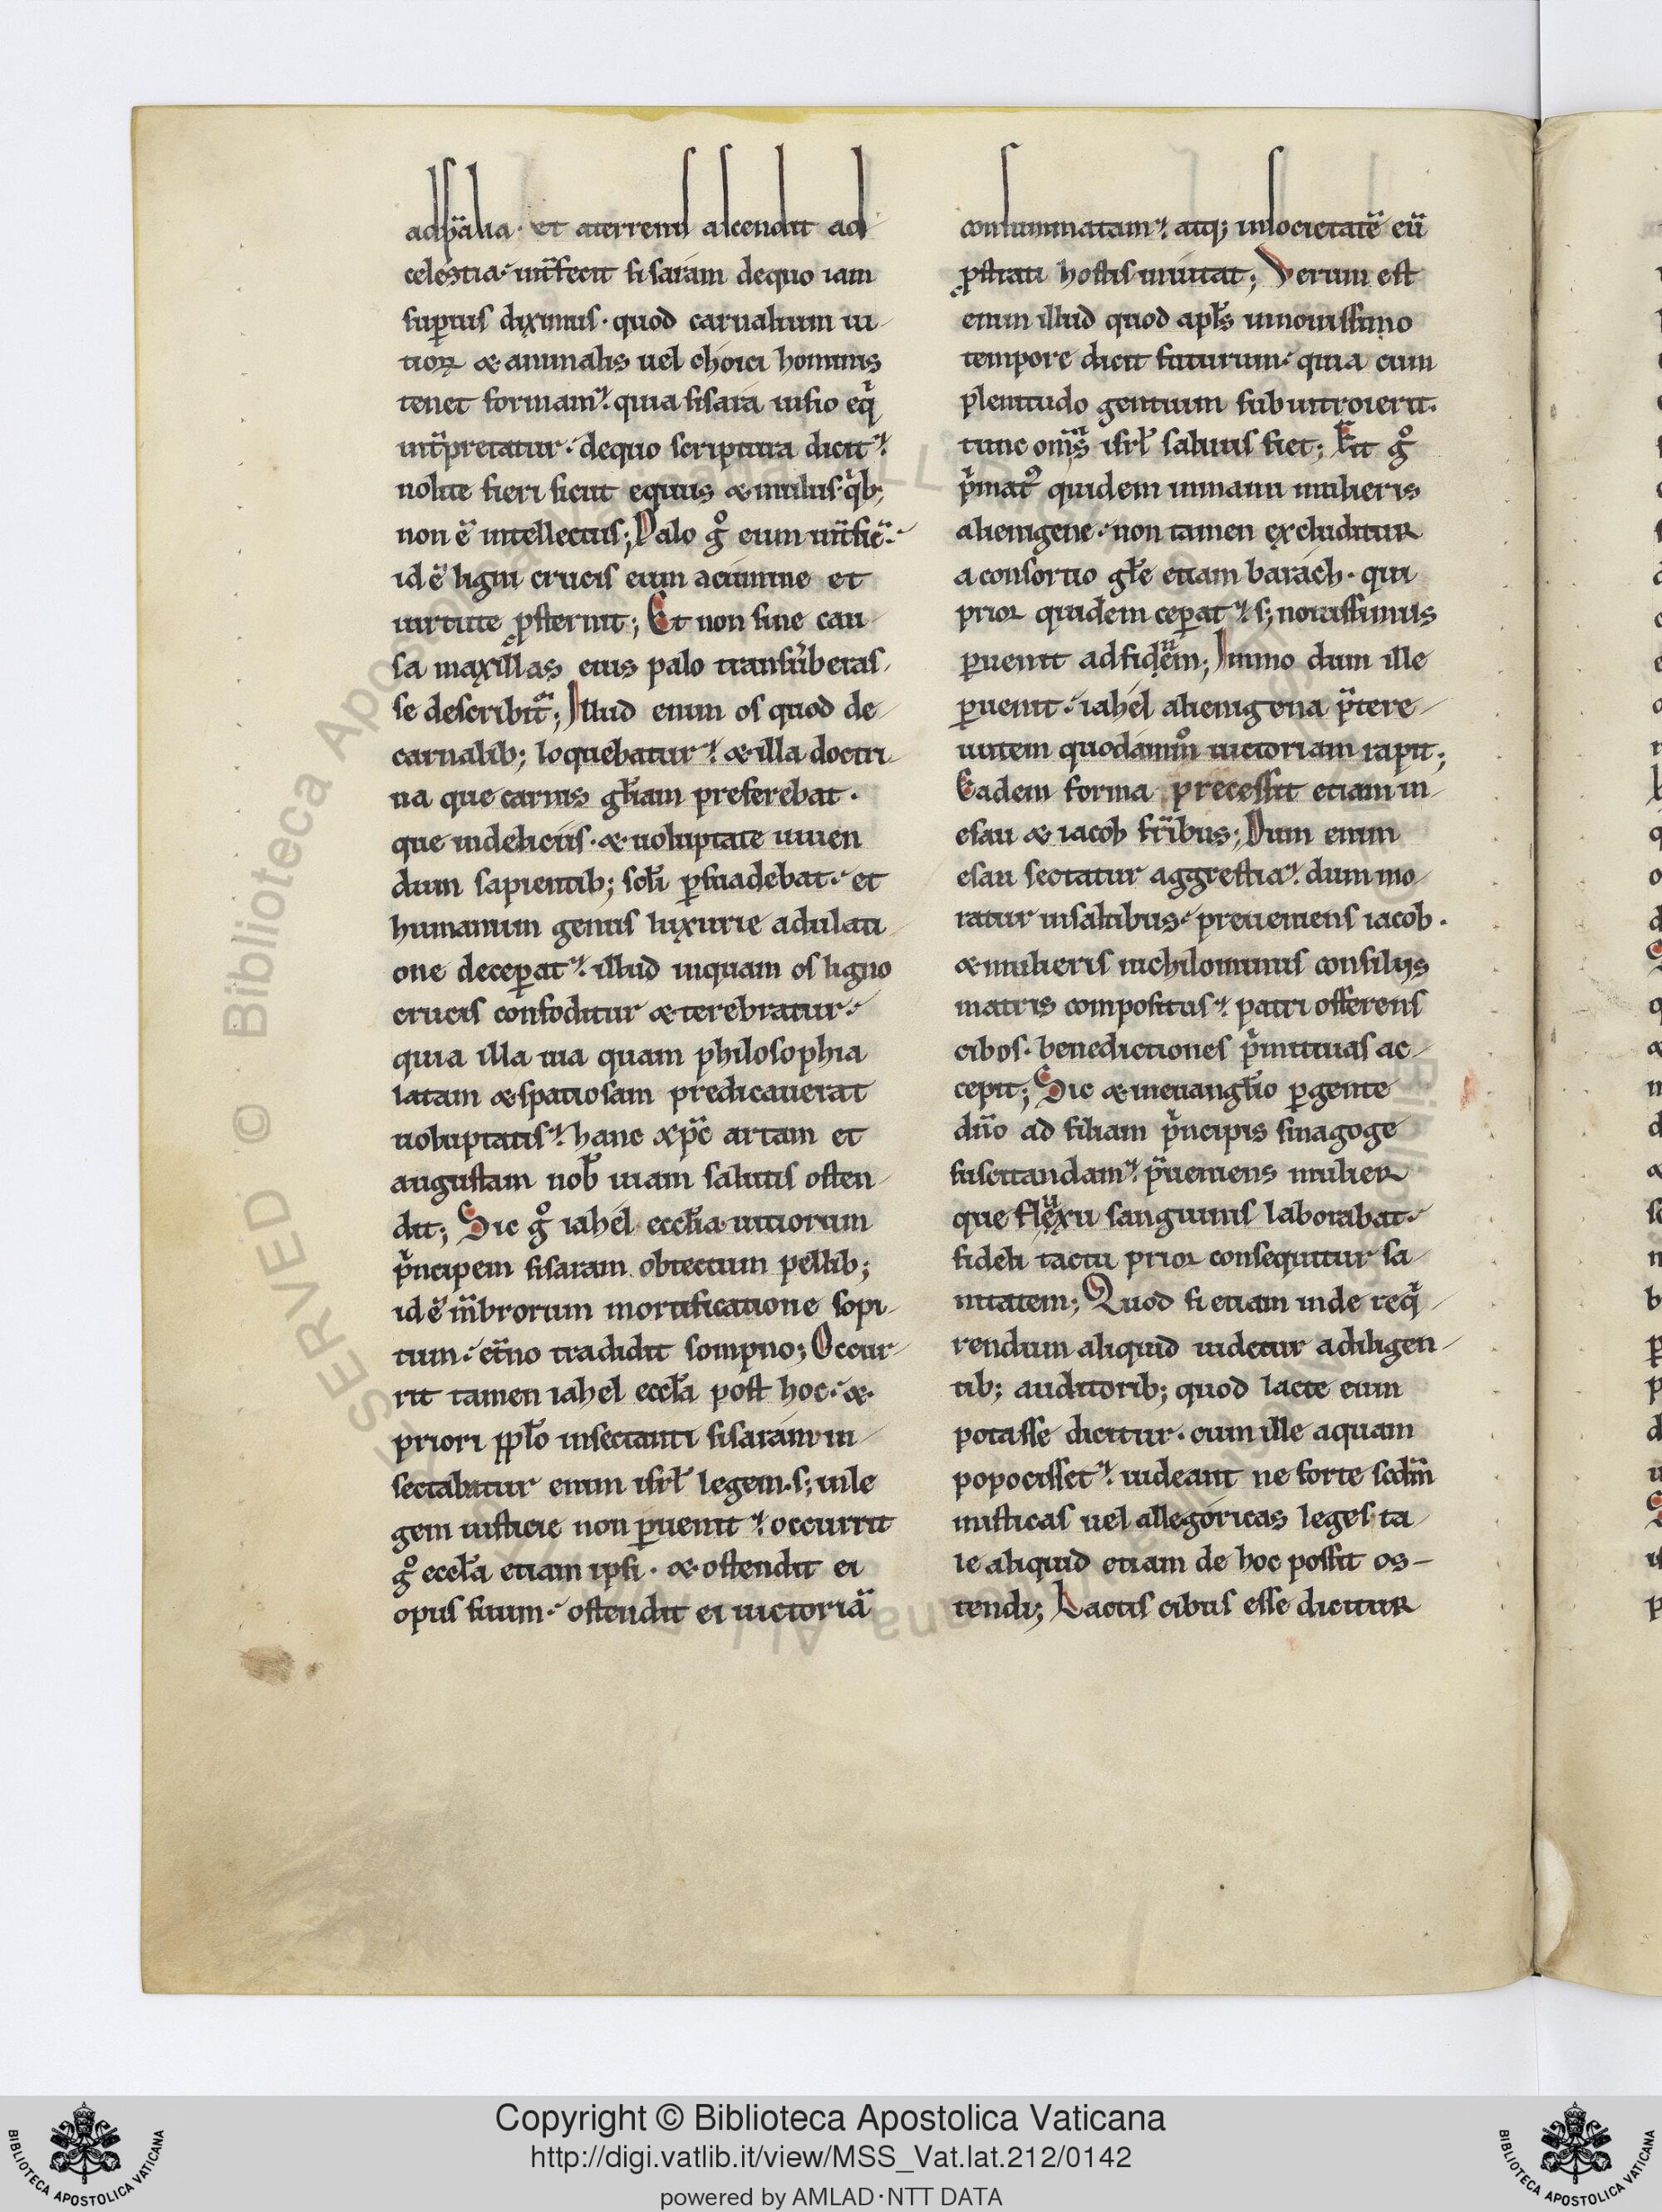 adsp̄alia· et aterrenis ascendit ad
celestia· int̄fecit sisaram dequo iam
superius diximus· quod carnalium ui
tioꝝ & animalis uel choici hominis
tenet formam· quia sisara uisio eq̇
int̄pretatur· dequo scriptura dicit
nolite fieri sicut equus & mulus· q̇b;
non ē intellectus; Palo g̊ eum int̄fic̄·
id ē ligni crucis eum acumine et
uirtute ꝓsternit; Et non sine cau
sa maxillas eius palo transu̇beras
se describit̄; Illud enim os quod de
carnalib; loquebatur· & illa doctri
na que carnis gl̄iam preferebat·
que indeliciis· & uoluptate uiuen
dum sapientib; scl̄i ꝑsuadebat· et
humanum genus luxurie adulati
one deceꝑat· illud inquam os ligno
crucis confoditur & terebratur·
quia illa uia quam philosophia
latam & spatiosam predicauerat
uoluptatis· hanc xp̄c artam et
angustam nob̄ uiam salutis osten
dit; Sic g̊ iahel eccl̄ia uitiorum
pṙncipem sisaram obtectum pellib;
id ē m̄brorum mortificatione sopi
tum· et̄no tradidit sompno; Occur
rit tamen iahel eccl̄a post hoc· &
priori ppl̄o insectanti sisaram in
sectabatur enim isrl̄ legem· s; inle
gem iusticie non ꝑuenit· occurrit
g̊ eccl̄a etiam ipsi· & ostendit ei
opus suum· ostendit ei uictoriā
consummatam· atq; insocietatē eū
ꝓstrati hostis inuitat; Verum est
enim illud quod apl̄s innouissimo
tempore dicit futurum· quia cum
plenitudo gentium subintroierit·
tunc om̄s isrl̄ saluus fiet; Fit g̊
pṙmatꝰ quidem inmanu mulieris
alienigene· non tamen excluditur
aconsortio gl̄e etiam barach· qui
prior quidem ceꝑat· s; nouissimus
ꝑuenit adfidem; Immo dum ille
ꝑuenit· iahel alienigena p̄tere
untem quodamm̊ uictoriam rapit;
Eadem forma precessit etiam in
esau & iacob fr̄ibus; Dum enim
esau sectatur aggrestia· dum mo
ratur insaltibus· preueniens iacob·
& mulieris nichilominus consiliis
matris compositus· patri offerens
cibos· benedictiones pṙmitiuas ac
cepit; Sic & ineuangl̄io ꝑgente
dn̄o ad filiam pṙncipis sinagoge
suscitandam· p̄ueniens mulier
que flexu sanguinis laborabat·
fideli tactu prior consequitur sa
nitatem; Quod si etiam inde req̇
rendum aliquid uidetur adiligen
tib; auditorib; quod lacte eum
potasse dicitur· cum ille aquam
popocisset· uideant ne forte scdm̄
misticas uel allegoricas leges ta
le aliquid etiam de hoc possit os
tendi; Lactis cibus esse dicitur
Copyright © Biblioteca Apostolica Vaticana
http://digi.vatlib.it/view/MSS_Vat.lat.212/0142
powered by AMLAD·NTT DATA
BIBLIOTECA APOSTOLICA VATICANA
BIBLIOTECA APOSTOLICA VATICANA